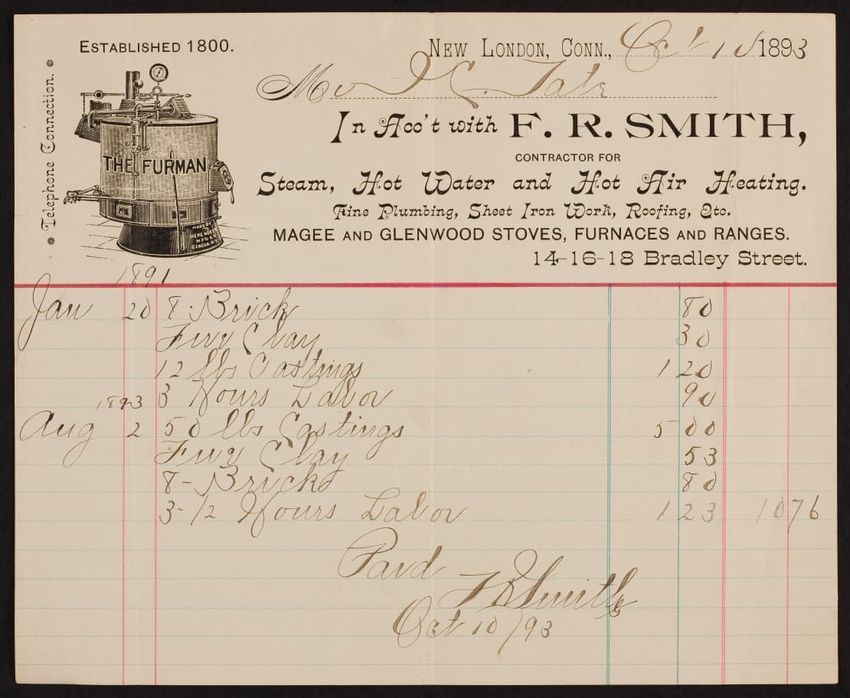 ESTABLISHED 1800.
Telephone Connection.
THE FURMAN
NEW LONDON, CONN., Oct 10 1893
Mr J C. Tate
In Acc't with F. R. SMITH,
CONTRACTOR FOR
Steam, Hot Water and Hot Air Heating.
Fine Plumbing, Sheet Iron Work, Roofing, Etc.
MAGEE AND GLENWOOD STOVES, FURNACES AND RANGES.
14-16-18 Bradley Street.
1891
Jan 20 8 - Brick 80
Fire Clay 30
12 lbs Castings 1 20
3 Hours Labor 90
1893
Aug 2 50 lbs Castings 5 00
Fire Clay 53
8 - Bricks 80
3 1/2 Hours Labor 1 23 10 76
Paid
F R Smith
Oct 10/93